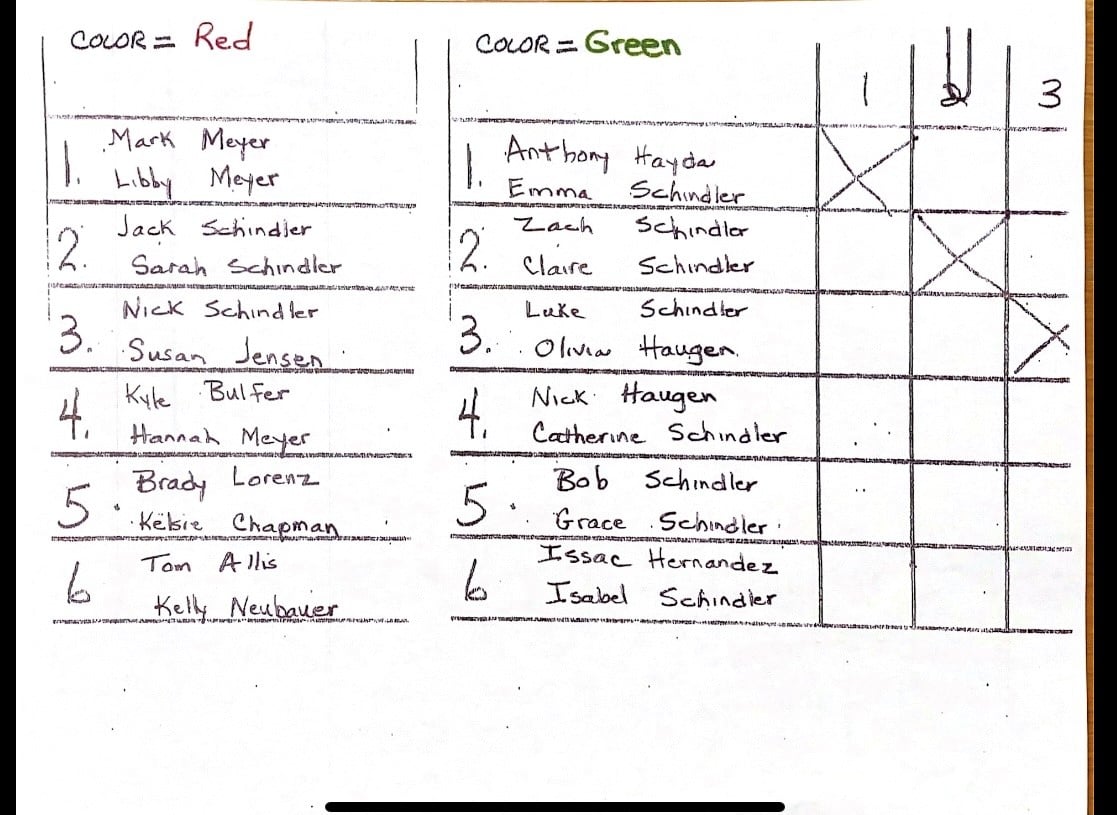 COLOR = Red
1. Mark Meyer
Libby Meyer
2. Jack Schindler
Sarah Schindler
3. Nick Schindler
Susan Jensen
4. Kyle Bulfer
Hannah Meyer
5. Brady Lorenz
Kelsie Chapman
6 Tom Allis
Kelly Neubauer
COLOR = Green
1. Anthony Hayda
Emma Schindler
2. Zach Schindler
Claire Schindler
3. Luke Schindler
Olivia Haugen
4. Nick Haugen
Catherine Schindler
5. Bob Schindler
Grace Schindler
6 Issac Hernandez
Isabel Schindler
1 2 3